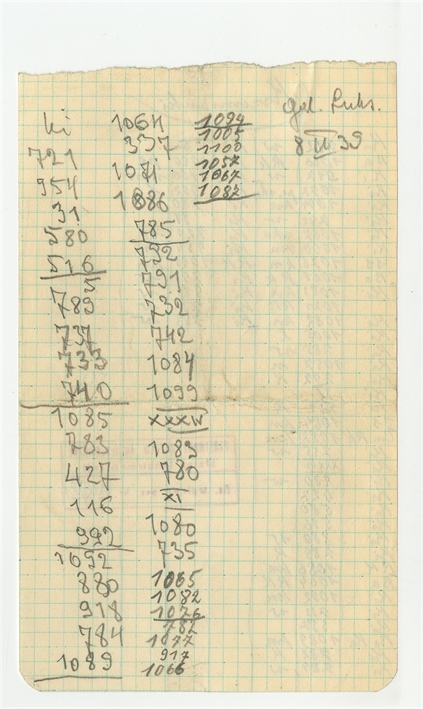 721
954
31
580
516
5
789
737
733
740
1085
783
427
116
992
1092
880
918
784
1089
1064
337
1071
1086
785
792
791
732
742
1084
1099
XXXIV
1083
780
XI
1080
735
1065
1082
1026
782
1077
917
1066
1094
1005
1100
1057
1067
1087
8 II 39